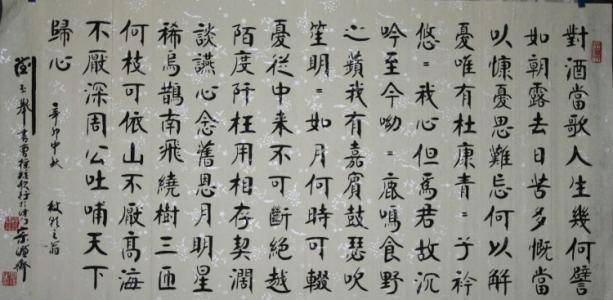 對酒當歌人生幾何譬
如朝露去日苦多慨當
以慷憂思難忘何以解
憂唯有杜康青=子衿
悠=我心但焉君故沉
吟至今呦=鹿鳴食野
之蘋我有嘉賓鼓瑟吹
笙明=如月何時可輟
憂從中来不可斷絕越
陌度阡枉用相存契濶
談讌心念舊恩月明星
稀烏鵲南飛繞樹三匝
何枝可依山不厭髙海
不厭深周公吐哺天下
歸心
辛卯中秋
書曹操短歌行於